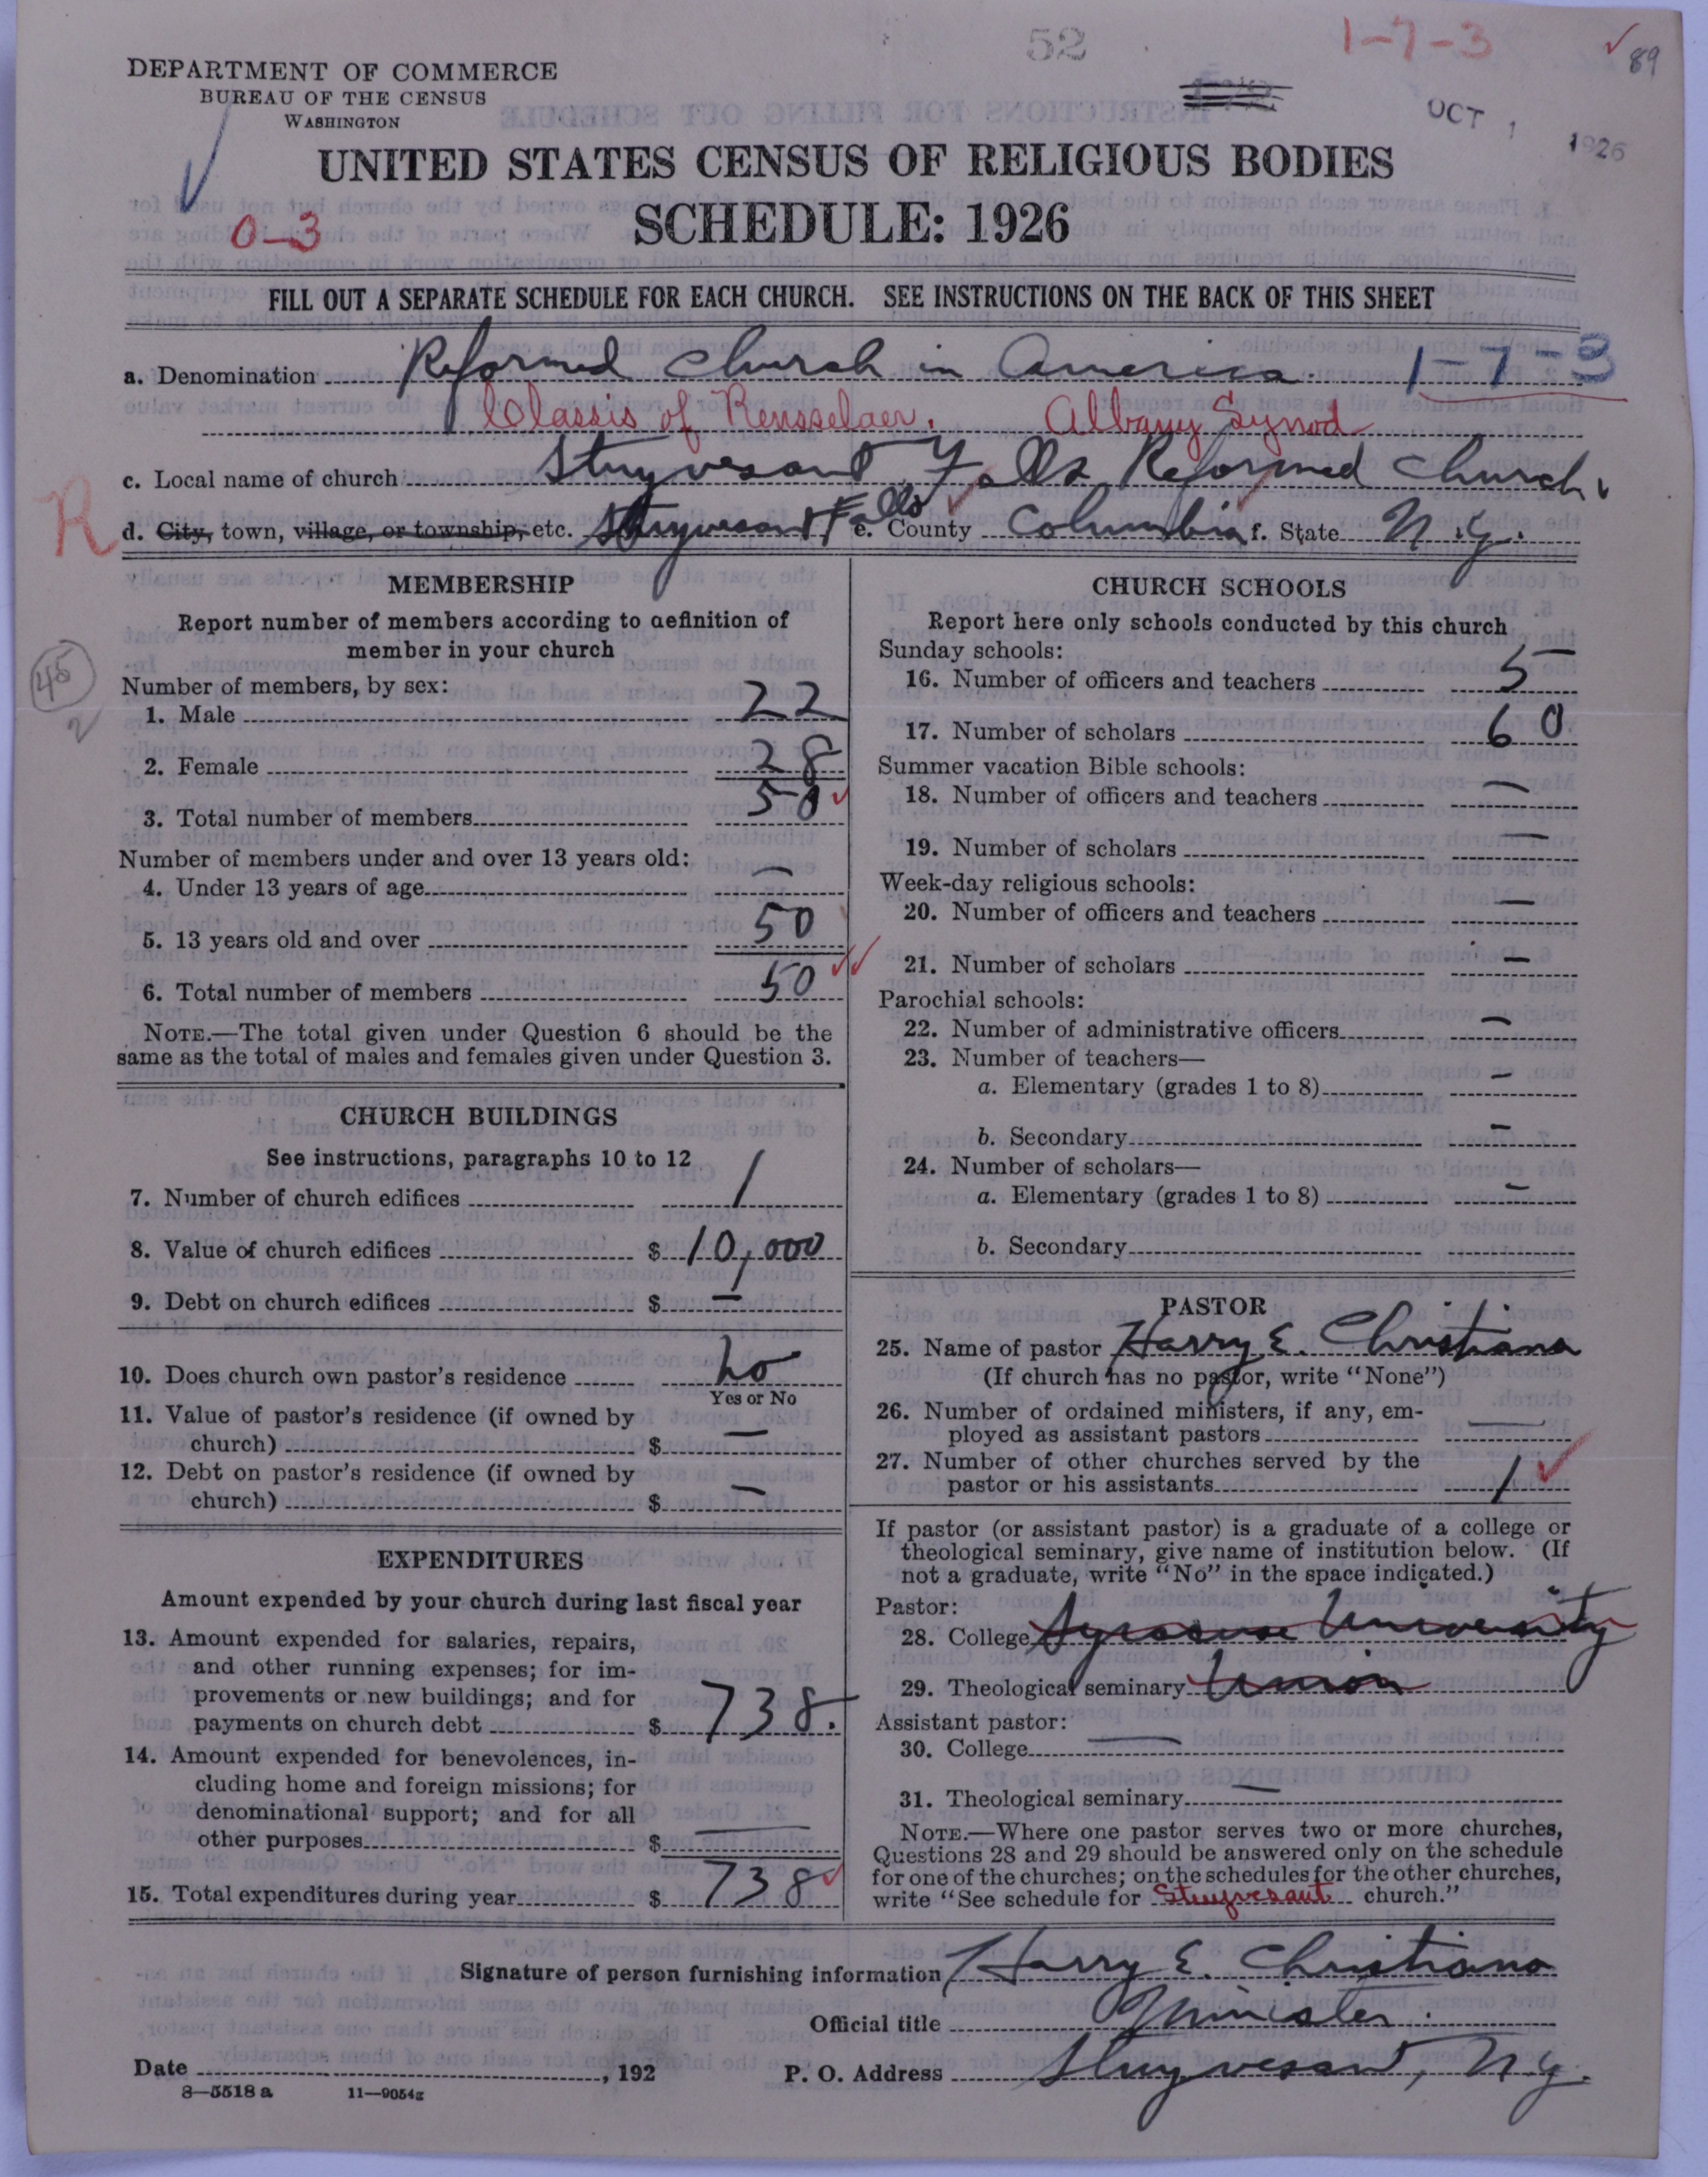 52
1-7-3
89
DEPARTMENT OF COMMERCE
BUREAU OF THE CENSUS
WASHINGTON
OCT 1 1926
UNITED STATES CENSUS OF RELIGIOUS BODIES
SCHEDULE: 1926
0-3
FILL OUT A SEPARATE SCHEDULE FOR EACH CHURCH. SEE INSTRUCTIONS ON THE BACK OF THIS SHEET
a. Denomination Reformed Church in America. 1-7-3
Classis of Rensselaer. Albany Synod
c. Local name of church Stuyvesant Falls Reformed Church
R
d. City, town, village, or township, etc. Stuyvesant Falls e. County Columbia f. State N.Y.
MEMBERSHIP
Report number of members according to definition of
member in your church
45
2
Number of members, by sex:
1. Male 22
2. Female 28
3. Total number of members 50
Number of members under and over 13 years old:
4. Under 13 years of age —
5. 13 years old and over 50
6. Total number of members 50
NOTE.—The total given under Question 6 should be the
same as the total of males and females given under Question 3.
CHURCH BUILDINGS
See instructions, paragraphs 10 to 12
7. Number of church edifices 1
8. Value of church edifices $ 10,000
9. Debt on church edifices $ —
10. Does church own pastor's residence no
Yes or No
11. Value of pastor's residence (if owned by
church) $ —
12. Debt on pastor's residence (if owned by
church) $ —
EXPENDITURES
Amount expended by your church during last fiscal year
13. Amount expended for salaries, repairs,
and other running expenses; for im-
provements or new buildings; and for
payments on church debt $ 738.
14. Amount expended for benevolences, in-
cluding home and foreign missions; for
denominational support; and for all
other purposes $ —
15. Total expenditures during year $ 738
CHURCH SCHOOLS
Report here only schools conducted by this church
Sunday schools:
16. Number of officers and teachers 5
17. Number of scholars 60
Summer vacation Bible schools:
18. Number of officers and teachers —
19. Number of scholars —
Week-day religious schools:
20. Number of officers and teachers —
21. Number of scholars —
Parochial schools:
22. Number of administrative officers —
23. Number of teachers—
a. Elementary (grades 1 to 8) —
b. Secondary —
24. Number of scholars—
a. Elementary (grades 1 to 8) —
b. Secondary
PASTOR
25. Name of pastor Harry E. Christiana
(If church has no pastor, write "None")
26. Number of ordained ministers, if any, em-
ployed as assistant pastors —
27. Number of other churches served by the
pastor or his assistants 1
If pastor (or assistant pastor) is a graduate of a college or
theological seminary, give name of institution below. (If
not a graduate, write "No" in the space indicated.)
Pastor:
28. College Syracuse University
29. Theological seminary Union
Assistant pastor:
30. College —
31. Theological seminary —
NOTE.—Where one pastor serves two or more churches,
Questions 28 and 29 should be answered only on the schedule
for one of the churches; on the schedules for the other churches,
write "See schedule for Stuyvesant church."
Signature of person furnishing information Harry E. Christiana
Official title Minister
Date , 192 P. O. Address Stuyvesant, N.Y.
8—5518 a 11—9054g